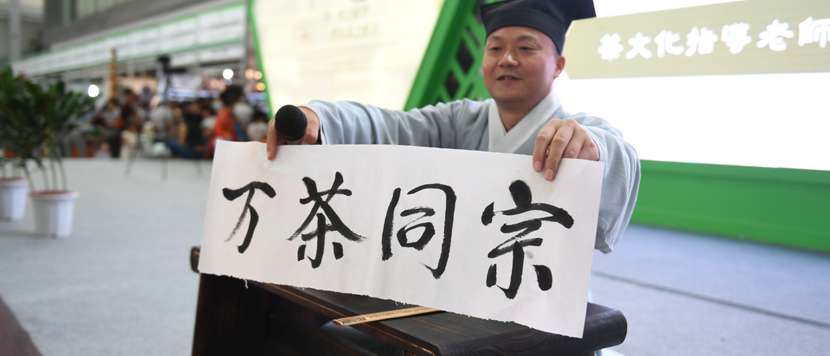 茶文化指導老師
万茶同宗